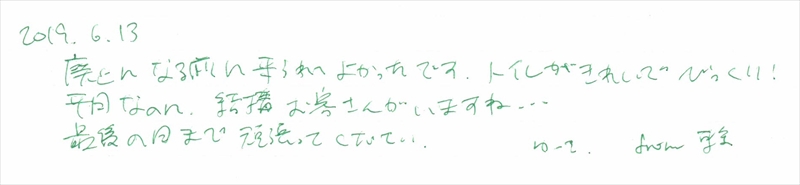 2019. 6.13
廃止になる前に来られてよかったです. トイレがきれいでびっくり!
平日なのに. 結構お客さんがいますね...
最後の日まで頑張ってください.
from